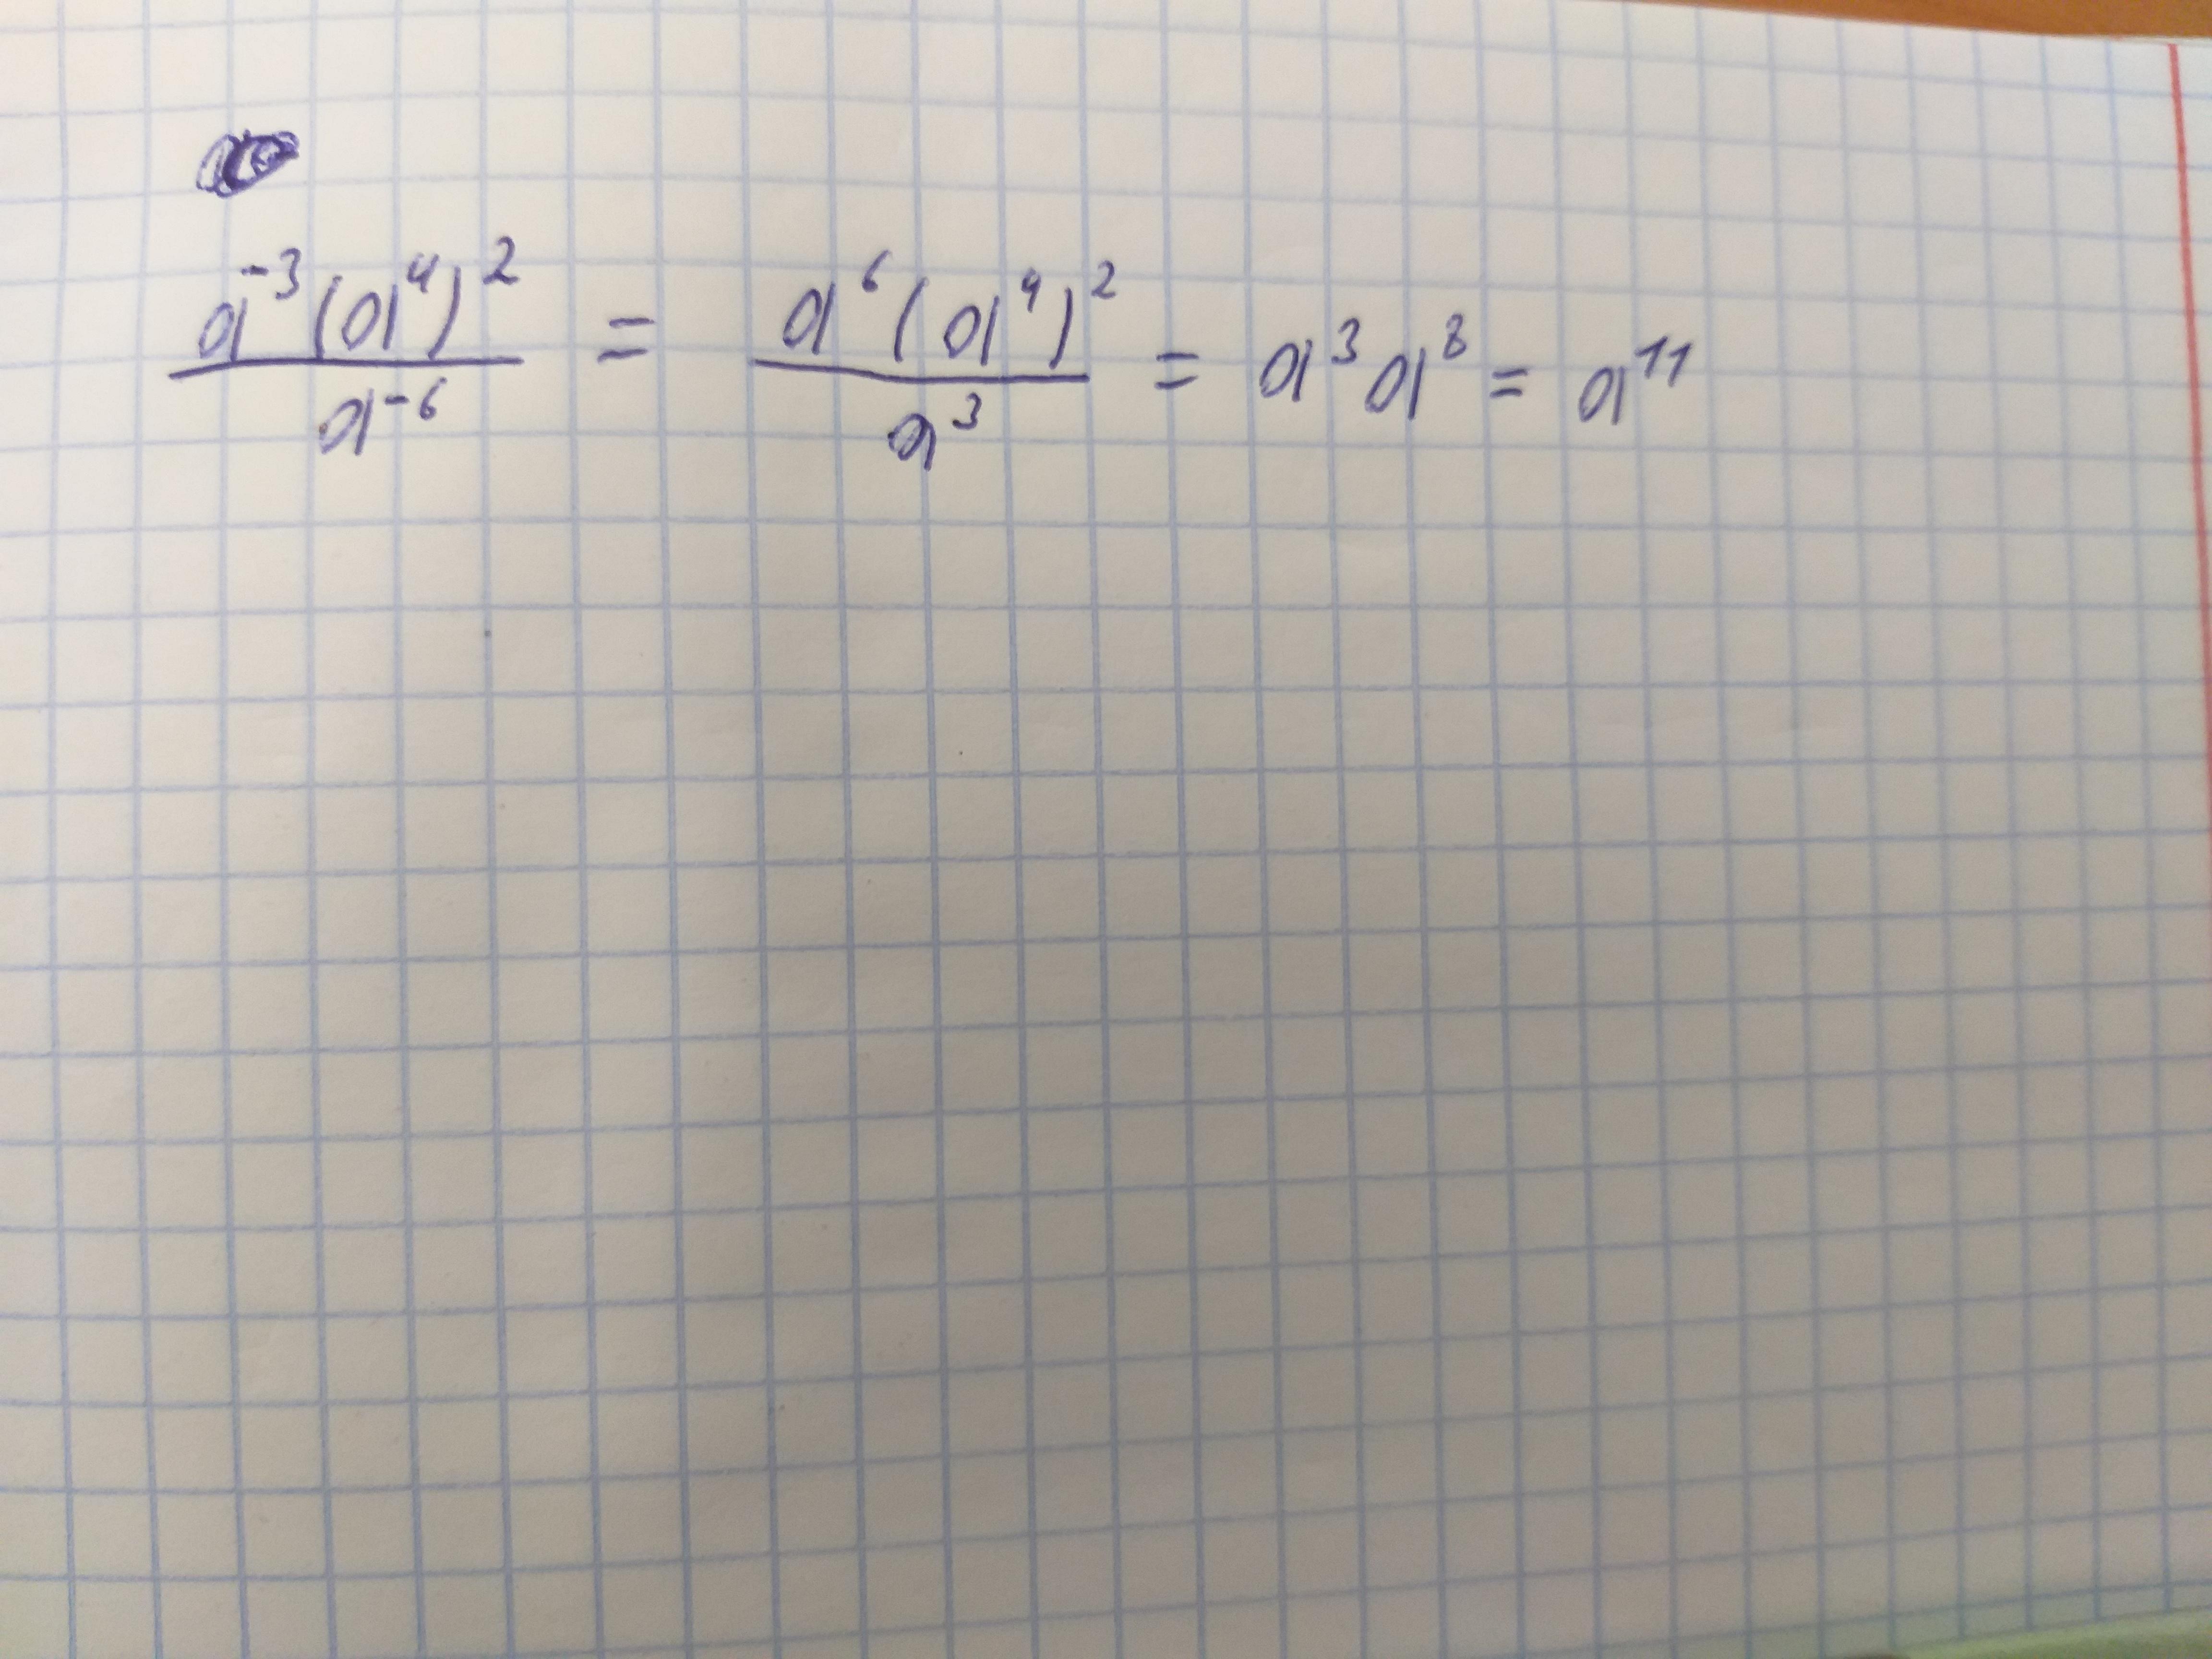 a^-3 (a^4)^2 / a^-6 = a^6 (a^4)^2 / a^3 = a^3 a^8 = a^11